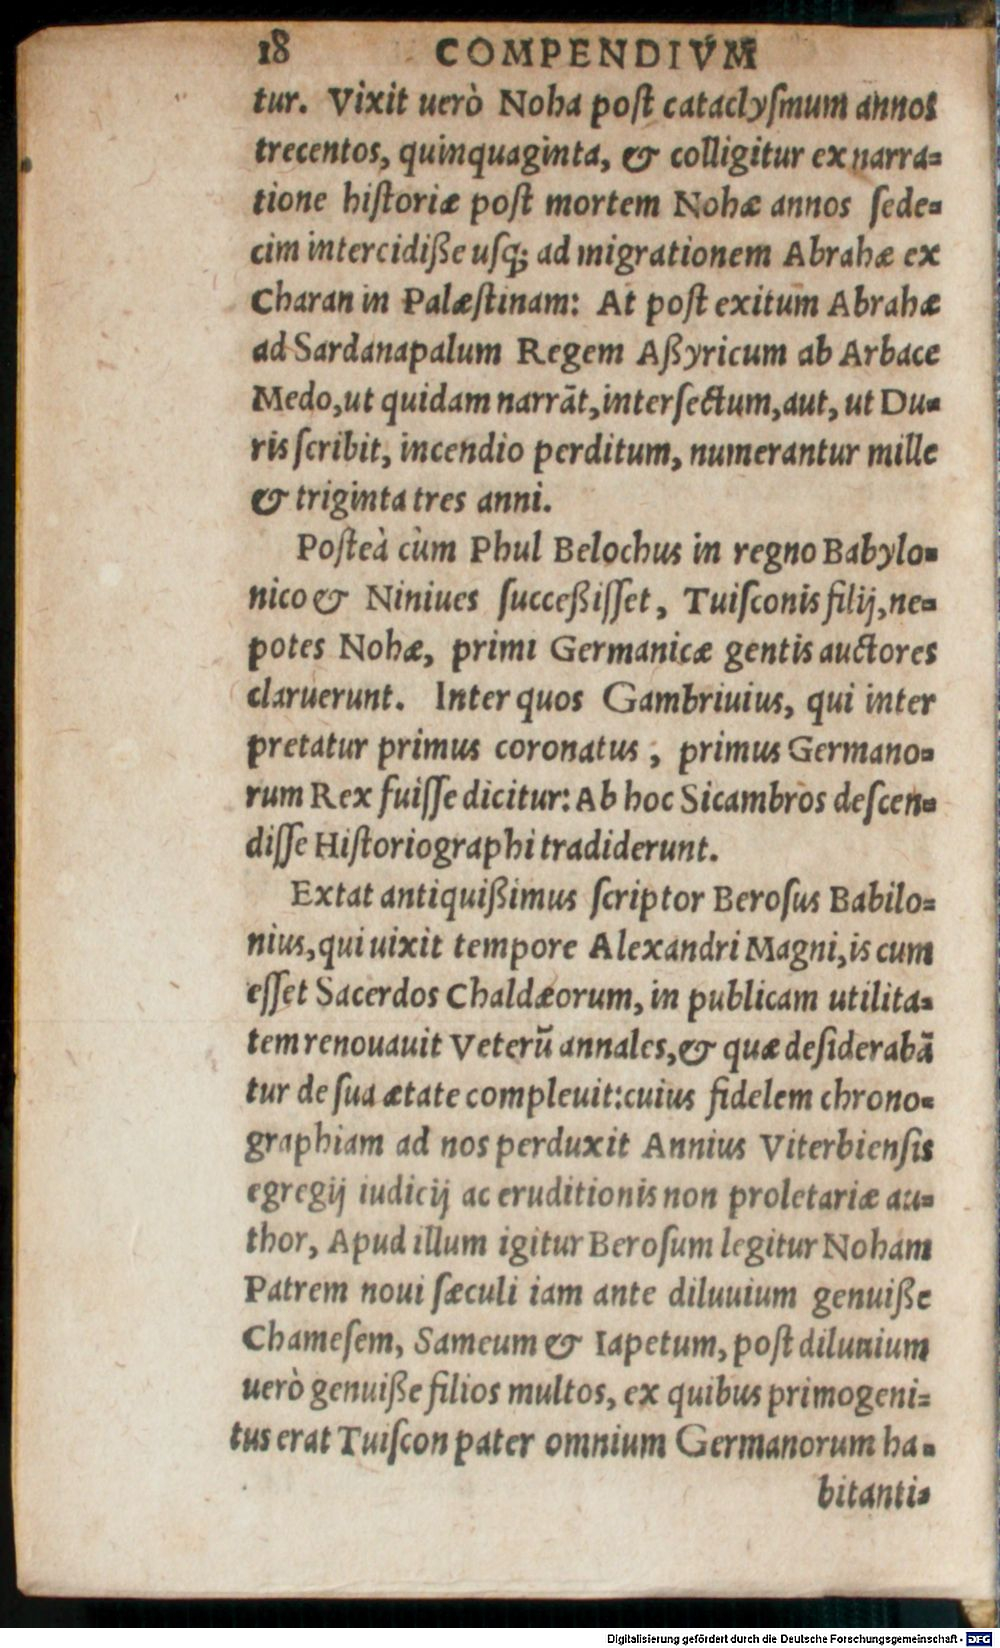 18 COMPENDIVM
tur. Vixit uerò Noha poſt cataclyſmum annos
trecentos, quinquaginta, & colligitur ex narra=
tione hiſtoriæ poſt mortem Nohæ annos ſede=
cim intercidiße uſq; ad migrationem Abrahæ ex
Charan in Palæſtinam: At poſt exitum Abrahæ
ad Sardanapalum Regem Aßyricum ab Arbace
Medo, ut quidam narrãt, interfectum, aut, ut Du=
ris ſcribit, incendio perditum, numerantur mille
& triginta tres anni.
Poſteà cùm Phul Belochus in regno Babylo=
nico & Niniues succeßiſſet, Tuiſconis filij, ne=
potes Nohæ, primi Germanicæ gentis auctores
claruerunt. Inter quos Gambriuius, qui inter
pretatur primus coronatus, primus Germano=
rum Rex fuiſſe dicitur: Ab hoc Sicambros deſcen=
diſſe Hiſtoriographi tradiderunt.
Extat antiquißimus ſcriptor Beroſus Babilo=
nius, qui uixit tempore Alexandri Magni, is cum
eſſet Sacerdos Chaldæorum, in publicam utilita=
tem renouauit Veterũ annales, & quæ deſiderabã
tur de ſua ætate compleuit: cuius fidelem chrono=
graphiam ad nos perduxit Annius Viterbienſis
egregij iudicij ac eruditionis non proletariæ au=
thor, Apud illum igitur Beroſum legitur Noham
Patrem noui ſæculi iam ante diluuium genuiße
Chameſem, Sameum & Iapetum, poſt diluuium
uerò genuiße filios multos, ex quibus primogeni=
tus erat Tuiſcon pater omnium Germanorum ha=
bitanti=
Digitalisierung gefördert durch die Deutsche Forschungsgemeinschaft - DFG